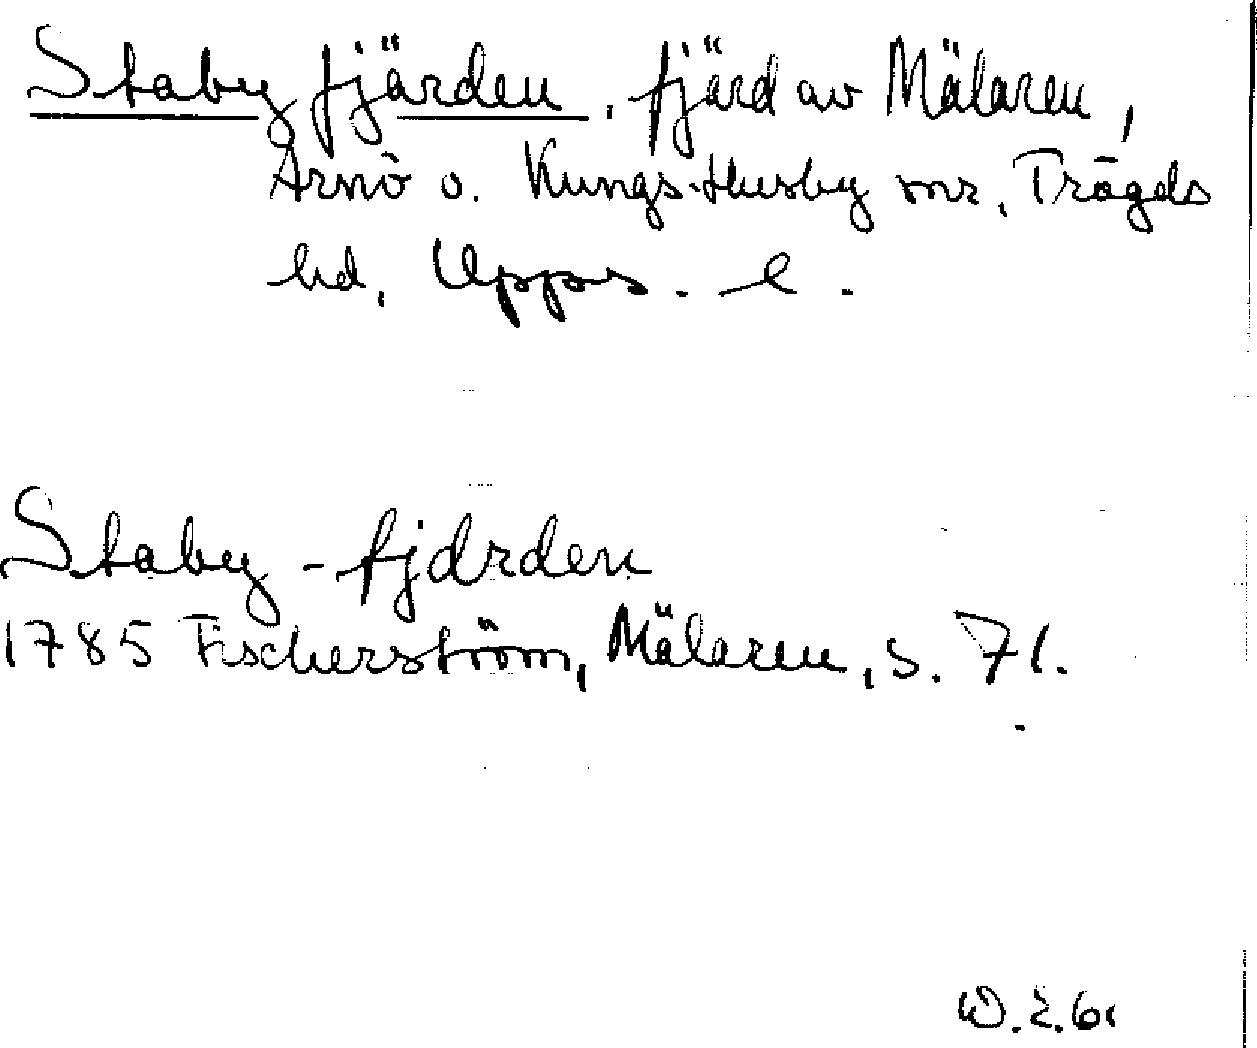 Stabyfjärden, fjärd av Mälaren,
Arnö o. Kungs-Husby snr, Trögds
hd, Upps. l.
Staby-fjärden
1785 Fischerström, Mälaren, s. 71.
W.Z.61